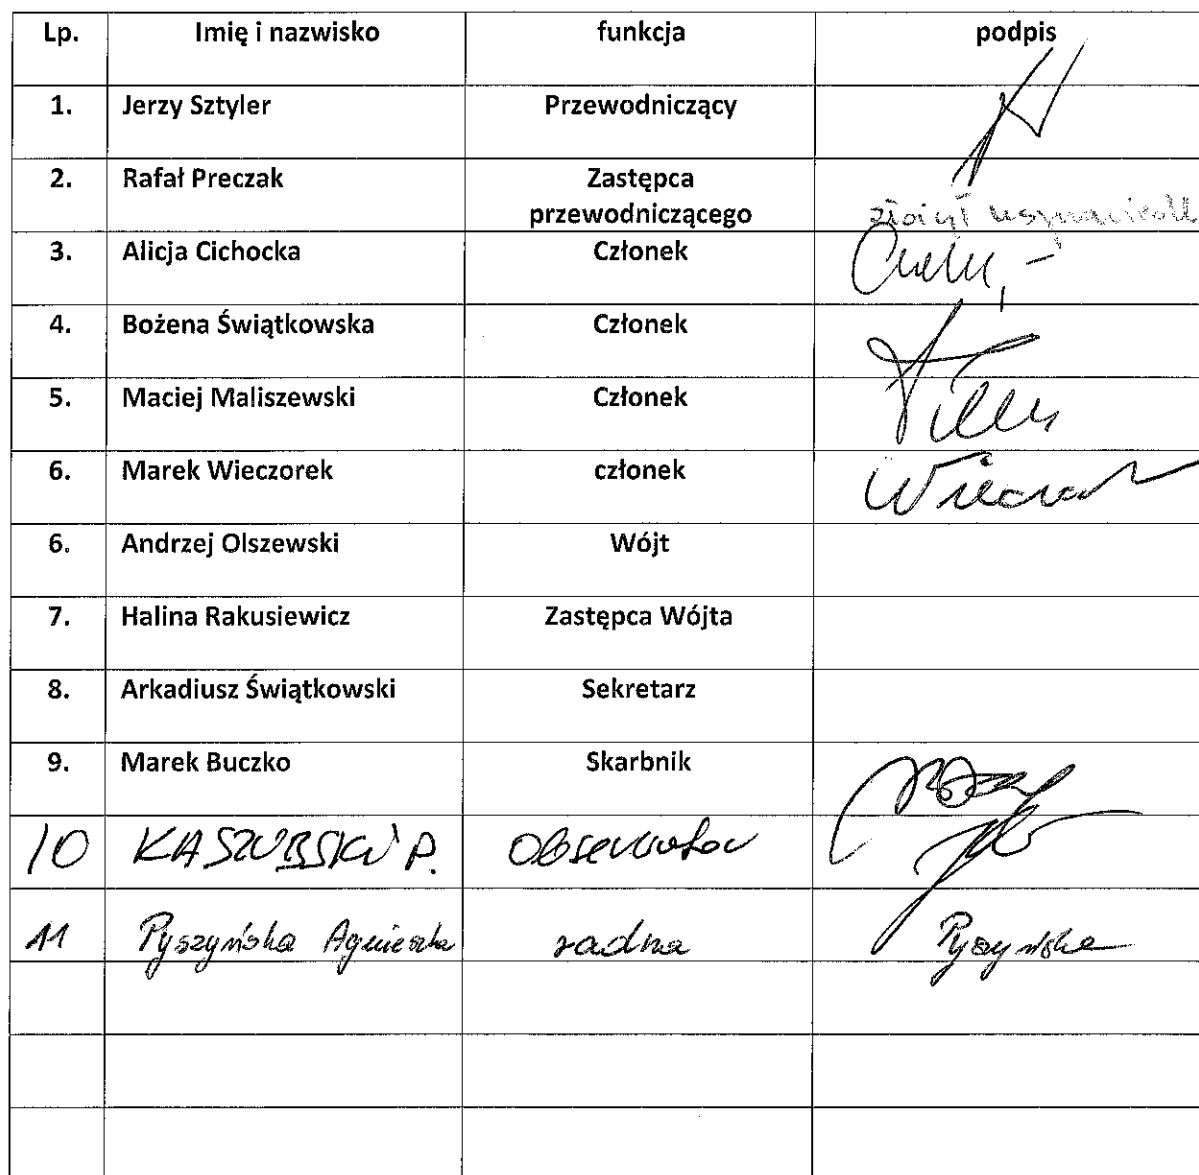 Lp. Imię i nazwisko funkcja podpis
1. Jerzy Sztyler Przewodniczący
2. Rafał Preczak Zastępca
przewodniczącego złożył
3. Alicja Cichocka Członek
4. Bożena Świątkowska Członek
5. Maciej Maliszewski Członek
6. Marek Wieczorek członek
6. Andrzej Olszewski Wójt
7. Halina Rakusiewicz Zastępca Wójta
8. Arkadiusz Świątkowski Sekretarz
9. Marek Buczko Skarbnik
10 KASZUBSKI P. Obserwator
11 Pyszyńska Agnieszka radna Pyszyńska